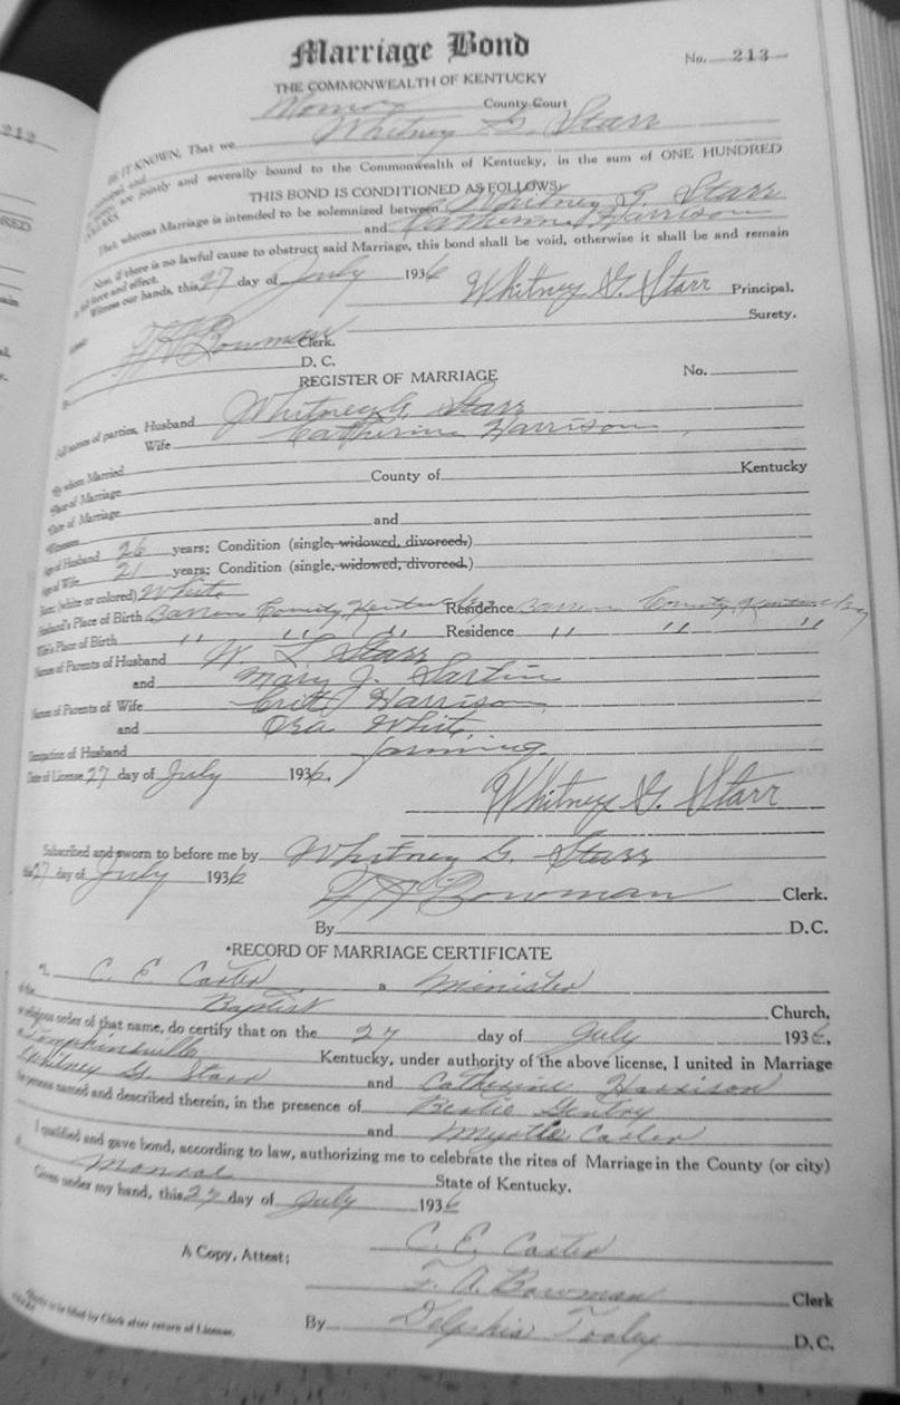 212
Marriage Bond
No. 213
THE COMMONWEALTH OF KENTUCKY
Monroe County Court
BE IT KNOWN, That we Whitney G. Starr
are jointly and severally bound to the Commonwealth of Kentucky, in the sum of ONE HUNDRED
THIS BOND IS CONDITIONED AS FOLLOWS:
That, whereas Marriage is intended to be solemnized between Whitney G. Starr
and Catherine Harrison
Now, if there is no lawful cause to obstruct said Marriage, this bond shall be void, otherwise it shall be and remain
in full force and effect.
Witness our hands, this 27 day of July 1936
Whitney G. Starr Principal.
Surety.
Bowman Clerk.
D. C.
REGISTER OF MARRIAGE No.
Full names of parties, Husband Whitney G. Starr
Wife Catherine Harrison
By whom Married
Place of Marriage County of Kentucky
Date of Marriage
Witnesses and
Age of Husband 26 years; Condition (single, widowed, divorced.)
Age of Wife 21 years; Condition (single, widowed, divorced.)
Race (white or colored) White
Husband's Place of Birth Barren County Kentucky Residence Barren County Kentucky
Wife's Place of Birth " " " Residence " " "
Names of Parents of Husband W. L. Starr
and Mary J. Sartin
Names of Parents of Wife Critt Harrison
and Ora White
Occupation of Husband farming
Date of License 27 day of July 1936.
Whitney G. Starr
Subscribed and sworn to before me by Whitney G. Starr
this 27 day of July 1936
Bowman Clerk.
By D.C.
*RECORD OF MARRIAGE CERTIFICATE
I, C. E. Carter a Minister
of the Baptist Church,
or religious order of that name, do certify that on the 27 day of July 1936,
at Tompkinsville Kentucky, under authority of the above license, I united in Marriage
Whitney G. Starr and Catherine Harrison
the persons named and described therein, in the presence of Gentry
and Myrtle Carter
I qualified and gave bond, according to law, authorizing me to celebrate the rites of Marriage in the County (or city)
of Monroe State of Kentucky.
Given under my hand, this 27 day of July 1936
C. E. Carter
A Copy, Attest:
F. A. Bowman Clerk
By Delphia Tooley D.C.